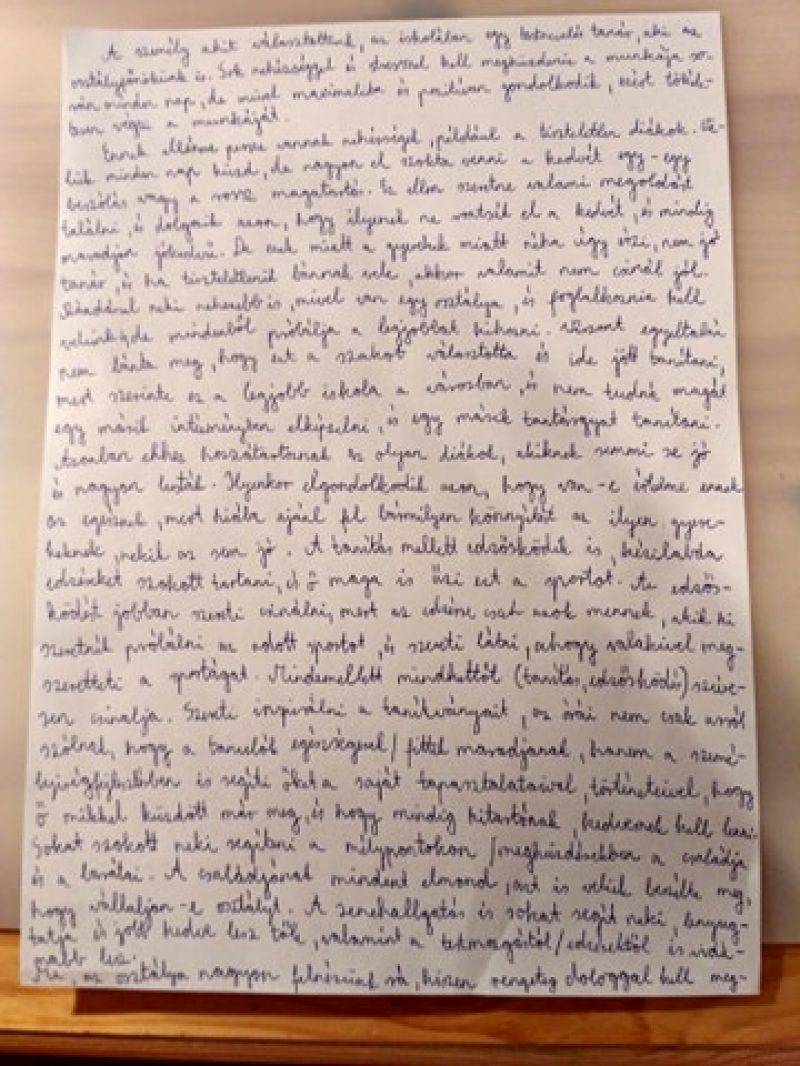 A személy akit választottunk, az iskolában egy testnevelés tanár, aki az
osztályfőnökünk is. Sok nehézséggel és stresszel kell megküzdenie a munkája so-
rán minden nap, de mivel maximalista és pozitívan gondolkodik, ezért tökéle-
tesen végzi a munkáját.
Ennek ellenére persze vannak nehézségek, például a tiszteletlen diákok. Ve-
lük minden nap küzd, de nagyon el szokta venni a kedvét egy-egy
beszólás vagy a rossz magatartás. Ez ellen szeretne valami megoldást
találni, és dolgozik azon, hogy ilyenek ne vegyék el a kedvét, és mindig
maradjon jókedvű. De ezek miatt a gyerekek miatt néha úgy érzi, nem jó
tanár, és ha tiszteletlenül bánnak vele, akkor valamit nem csinál jól.
Ráadásul neki nehezebb is, mivel van egy osztálya, és foglalkoznia kell
velünk, de mindenből próbálja a legjobbat kihozni. Viszont egyáltalán
nem bánta meg, hogy ezt a szakot választotta és ide jött tanítani,
mert szerinte ez a legjobb iskola a városban, és nem tudná magát
egy másik intézményben elképzelni, és egy másik tantárgyat tanítani.
Azonban ehhez hozzátartoznak az olyan diákok, akiknek semmi se jó
és nagyon lusták. Ilyenkor elgondolkodik azon, hogy van-e értelme ennek
az egésznek, mert hiába ajánl fel bármilyen könnyítést az ilyen gyere-
keknek, nekik az sem jó. A tanítás mellett edzősködik is, kézilabda
edzéseket szokott tartani, és ő maga is űzi ezt a sportot. Az edzős-
ködést jobban szereti csinálni, mert az edzésre csak azok mennek, akik ki
szeretnék próbálni az adott sportot, és szereti látni, ahogy valakivel meg-
szeretteti a sportágat. Mindemellett mindkettőt (tanítás, edzősködés) szíve-
sen csinálja. Szereti inspirálni a tanítványait, az órái nem csak arról
szólnak, hogy a tanulók egészségesek/fittek maradjanak, hanem a szemé-
lyiségfejlesztésben is segíti őket a saját tapasztalataival, történeteivel, hogy
ő mikkel küzdött már meg, és hogy mindig kitartónak, kedvesnek kell lenni.
Sokat szokott neki segíteni a mélypontokon/megküzdésekben a családja
és a barátai. A családjának mindent elmond, azt is velük beszélte meg,
hogy vállaljon-e osztályt. A zenehallgatás is sokat segít neki, lenyug-
tatja és jobb kedve lesz tőle, valamint a testmozgástól/edzésektől is vidá-
mabb lesz.
Mi, az osztálya nagyon felnézünk rá, hiszen rengeteg dologgal kell meg-